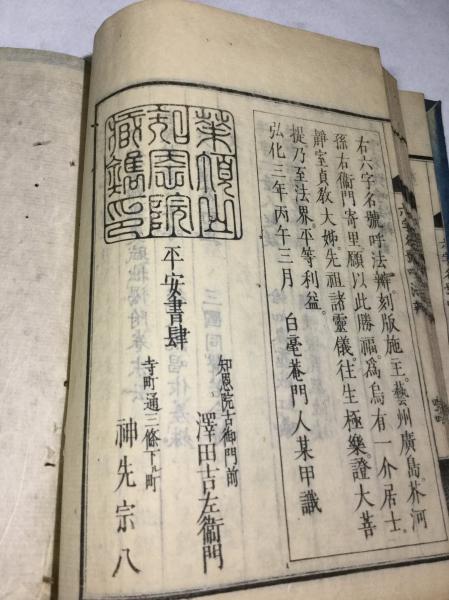 右六字名號呼法辨刻版施主。藝州廣島。芥河
孫右衞門寄里願以此勝福。爲烏有一介居士。
靜室貞敎大姊。先祖諸靈儀。往生極樂。證大菩
提乃至法界。平等利益。
弘化三年丙午三月 白毫菴門人某甲識
華頂山
知恩院
藏鐫印
平安書肆
知恩院古御門前
澤田吉左衞門
寺町通三條下ル町
神先宗八